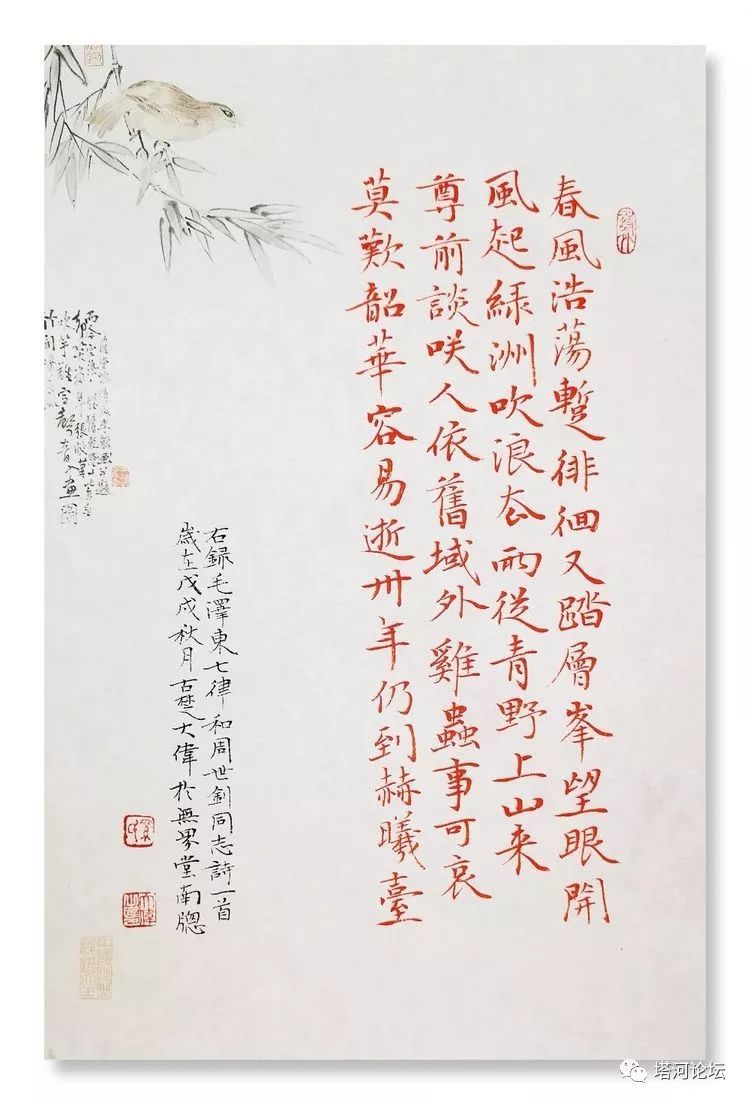 春風浩蕩蹔徘徊又踏層峯望眼開
風起綠洲吹浪去雨從青野上山来
尊前談咲人依舊域外雞蟲事可哀
莫歎韶華容易逝卅年仍到赫曦臺
右録毛澤東七律和周世釗同志詩一首
歲在戊戌秋月古楚大偉於無界堂南牕
塔河论坛